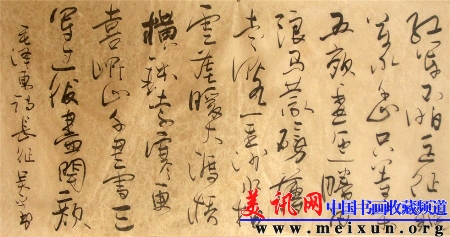 红军不怕远征难
万水千山只等闲
五岭逶迤腾细
浪乌蒙磅礴
走泥丸金沙水拍
云崖暖大渡桥
横铁索寒更
喜岷山千里雪三
军过后尽开颜
毛泽东词长征吴
美讯网中国书画收藏频道
www.meixun.org